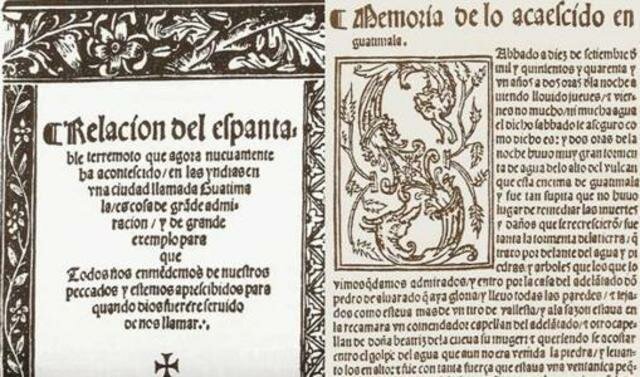 Relacion del espanta-
ble terremoto que agora nueuamente
ha acontescido / en las yndias en
vna ciudad llamada Guatima
la / es cosa de grãde admi-
racion / y de grande
exemplo para
que
Todos nos enmẽdemos de nuestros
peccados y estemos aprescibidos para
quando dios fuere seruido
de nos llamar.
Memoria de lo acaescido en
guatimala.
Sabbado a diez de setiembre d
mil y quinientos y quarenta y
vn años a dos oras dla noche a
uiendo llouido jueues / t vier-
nes no mucho / ni mucha agua
el dicho sabbado se aseguro co
mo dicho es: y dos oras de la
noche huuo muy gran tormen
ta de agua de lo alto del vulcan
que esta encima de guatimala
y fue tan supita que no huuo
lugar de remediar las muertes
y daños que se recrescierõ / fue
tanta la tormenta dela tierra / q̃
traxo por delante del agua y pi
edras y arboles que los que lo
vimos q̃damos admirados / y entro por la casa del adelãtado dõ
pedro de aluarado q̃ aya gloria / y lleuo todas las paredes / t teja
dos como estaua mas de vn tiro de vallesta / y ala sazon estaua en
la recamara vn comendador capellan del adelãtado / t otro cape
llan de doña beatriz dela cueua su muger: t queriendo se acostar
entro el golpe del agua que aun no era venida la piedra / y leuan-
to los en alto: t fue con tanta fuerça que estaua vna ventanica peq̃